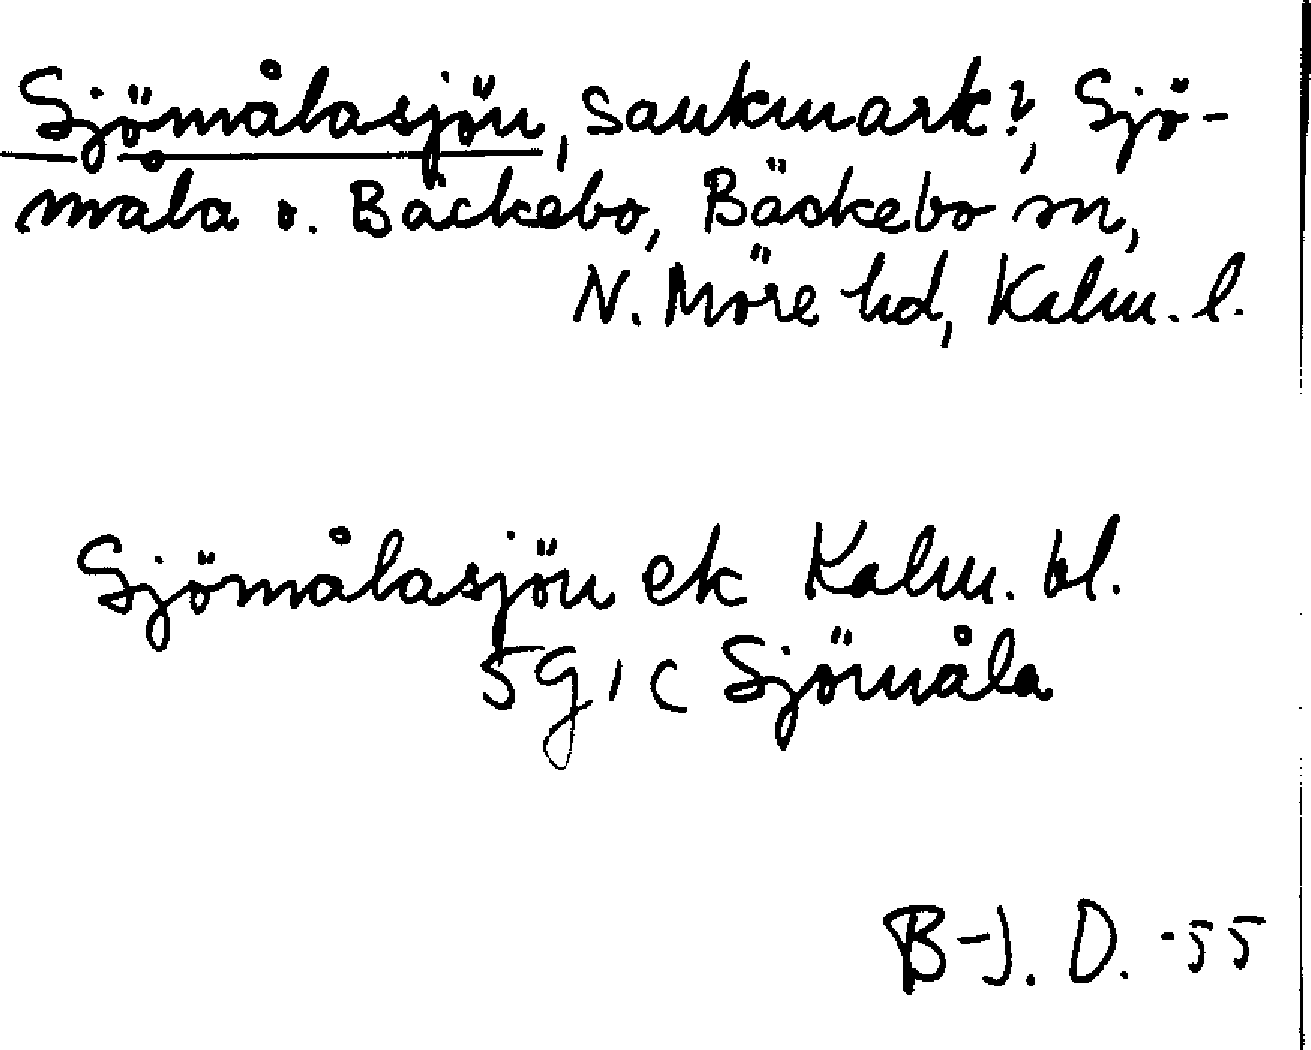 Sjömålasjön, sankmark?, Sjö-
måla o. Bäckebo, Bäckebo sn,
N. Möre hd, Kalm. l.
Sjömålasjön ek Kalm. bl.
5g, c Sjömåla
B-J. D. -55